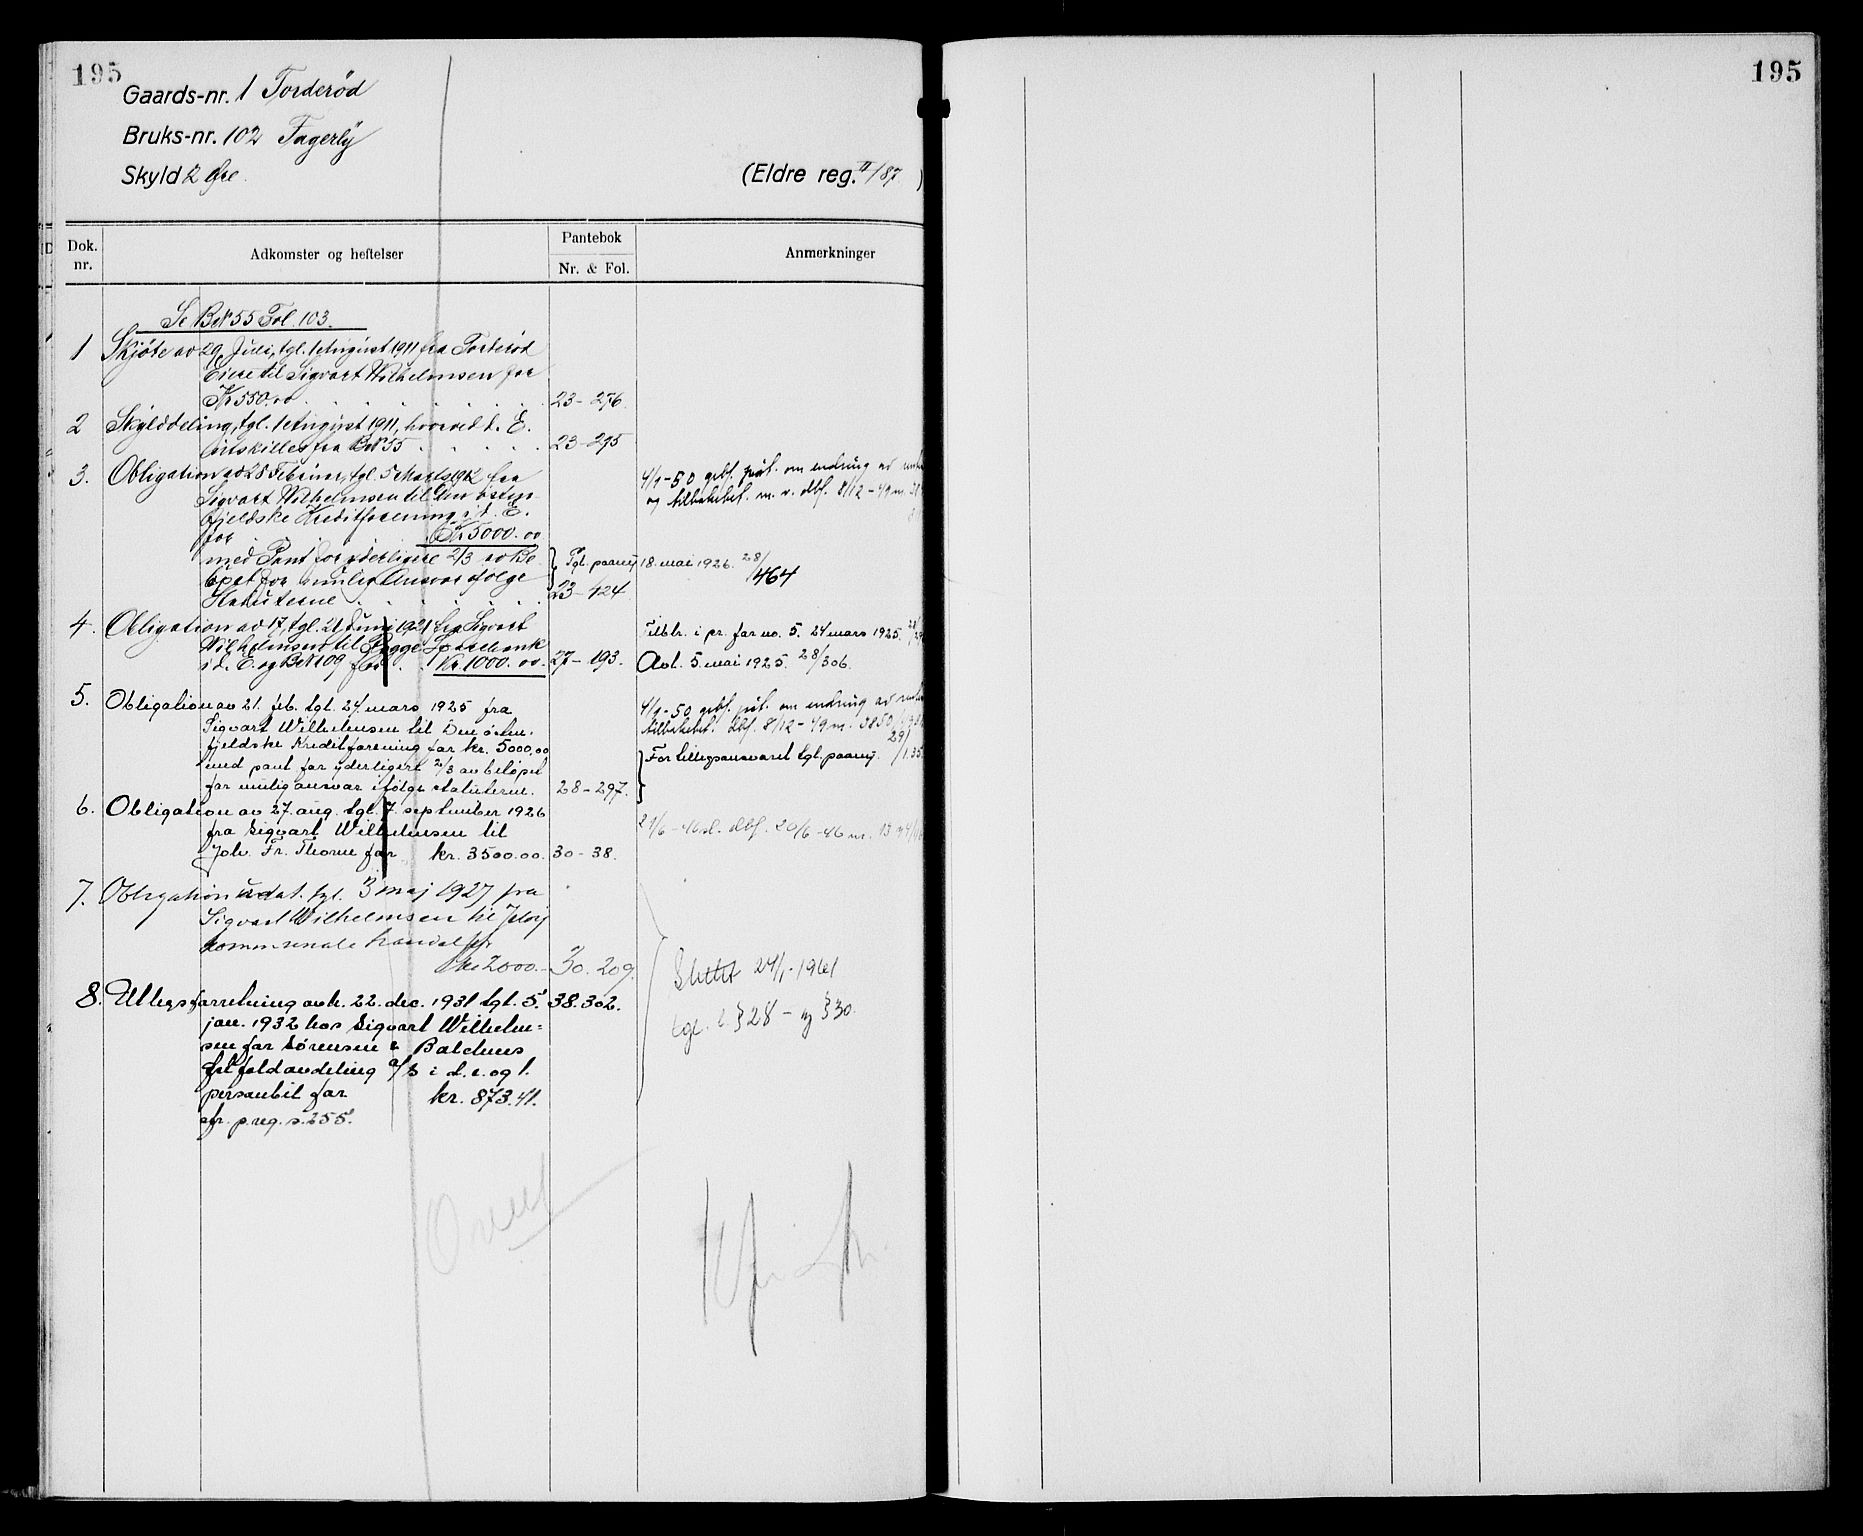 195
Gaards-nr. 1 Torderöd
Bruks-nr. 102 Fagerly
Skyld 2 Øre. (Eldre reg. II/87 )
Dok. nr. Adkomster og heftelser Pantebok Nr. & Fol. Anmerkninger
Se BN 55 Fol. 103.
1 Skjöte av 29 Juli, tgl. 1 August 1911 fra Torderöd
Eiere til Sigvart Wilhelmsen for
Kr 550.00 . . . . . 23 - 276.
2 Skylddeling, tgl. 1 August 1911, hvorved d. E.
utskilles fra BN 55 . . . . 23 - 295
3. Obligation av 28 Februar, tgl. 5 Marts 1912 fra
Sigvart Wilhelmsen til Den östen-
fjeldske Kreditforening i d. E.
for . . . Kr 5000.00
med Pant for yderligere 2/3 av Be-
löpet for mulig Ansvar ifölge
Statuterne . . . . . 23 - 424
4/1-50 gebf. påt. om endring av
og tilbakebet. m. v. dbf. 8/12-49 m.
Tgl. paany 18. mai 1926. 28/464
4. Obligation av 17, tgl. 21 Juni 1921 fra Sigvart
Wilhelmsen til Rygge Sparebank
i d. E. og BN 109 for . . Kr. 1000.00. 27 - 193.
Tilbtr. i pr. for no. 5. 24 mars 1925.
Avl. 5. mai 1925. 28/306.
5. Obligation av 21. feb. tgl. 24. mars 1925 fra
Sigvart Wilhelmsen til Den östen-
fjeldske Kreditforening for kr. 5000,00
med pant for yderligere 2/3 av belöpet
for mulig ansvar ifölge statuterne. 28 - 297.
4/1-50 gebf. påt. om endring av
tilbakebet. Dbf. 8/12-49 m. 3850/
For tilleggsansvaret tgl. paany. 29/135
6. Obligation av 27. aug. tgl. 7. september 1926
fra Sigvart Wilhelmsen til
Joh. Fr. Thorne for kr. 3500.00. 30 - 38.
21/6-46 sl. dbf. 20/6-46 nr.
7. Obligation udat. tgl. 3 maj 1927 fra
Sigvart Wilhelmsen til Jelöy
kommunale handel for
kr 2000.- 30. 209.
Slettet 24/1-1961
tgl. l. § 28 - og § 30.
8. Utlegsforretning avh. 22. dec. 1931 tgl. 5. 38. 302.
jan. 1932 hos Sigvart Wilhelm-
sen for Sörensen & Balchens
fetfoldavdeling a/s i d. e. og l.
personbil for kr. 873.41.
cfr. p.reg. s. 255.
195